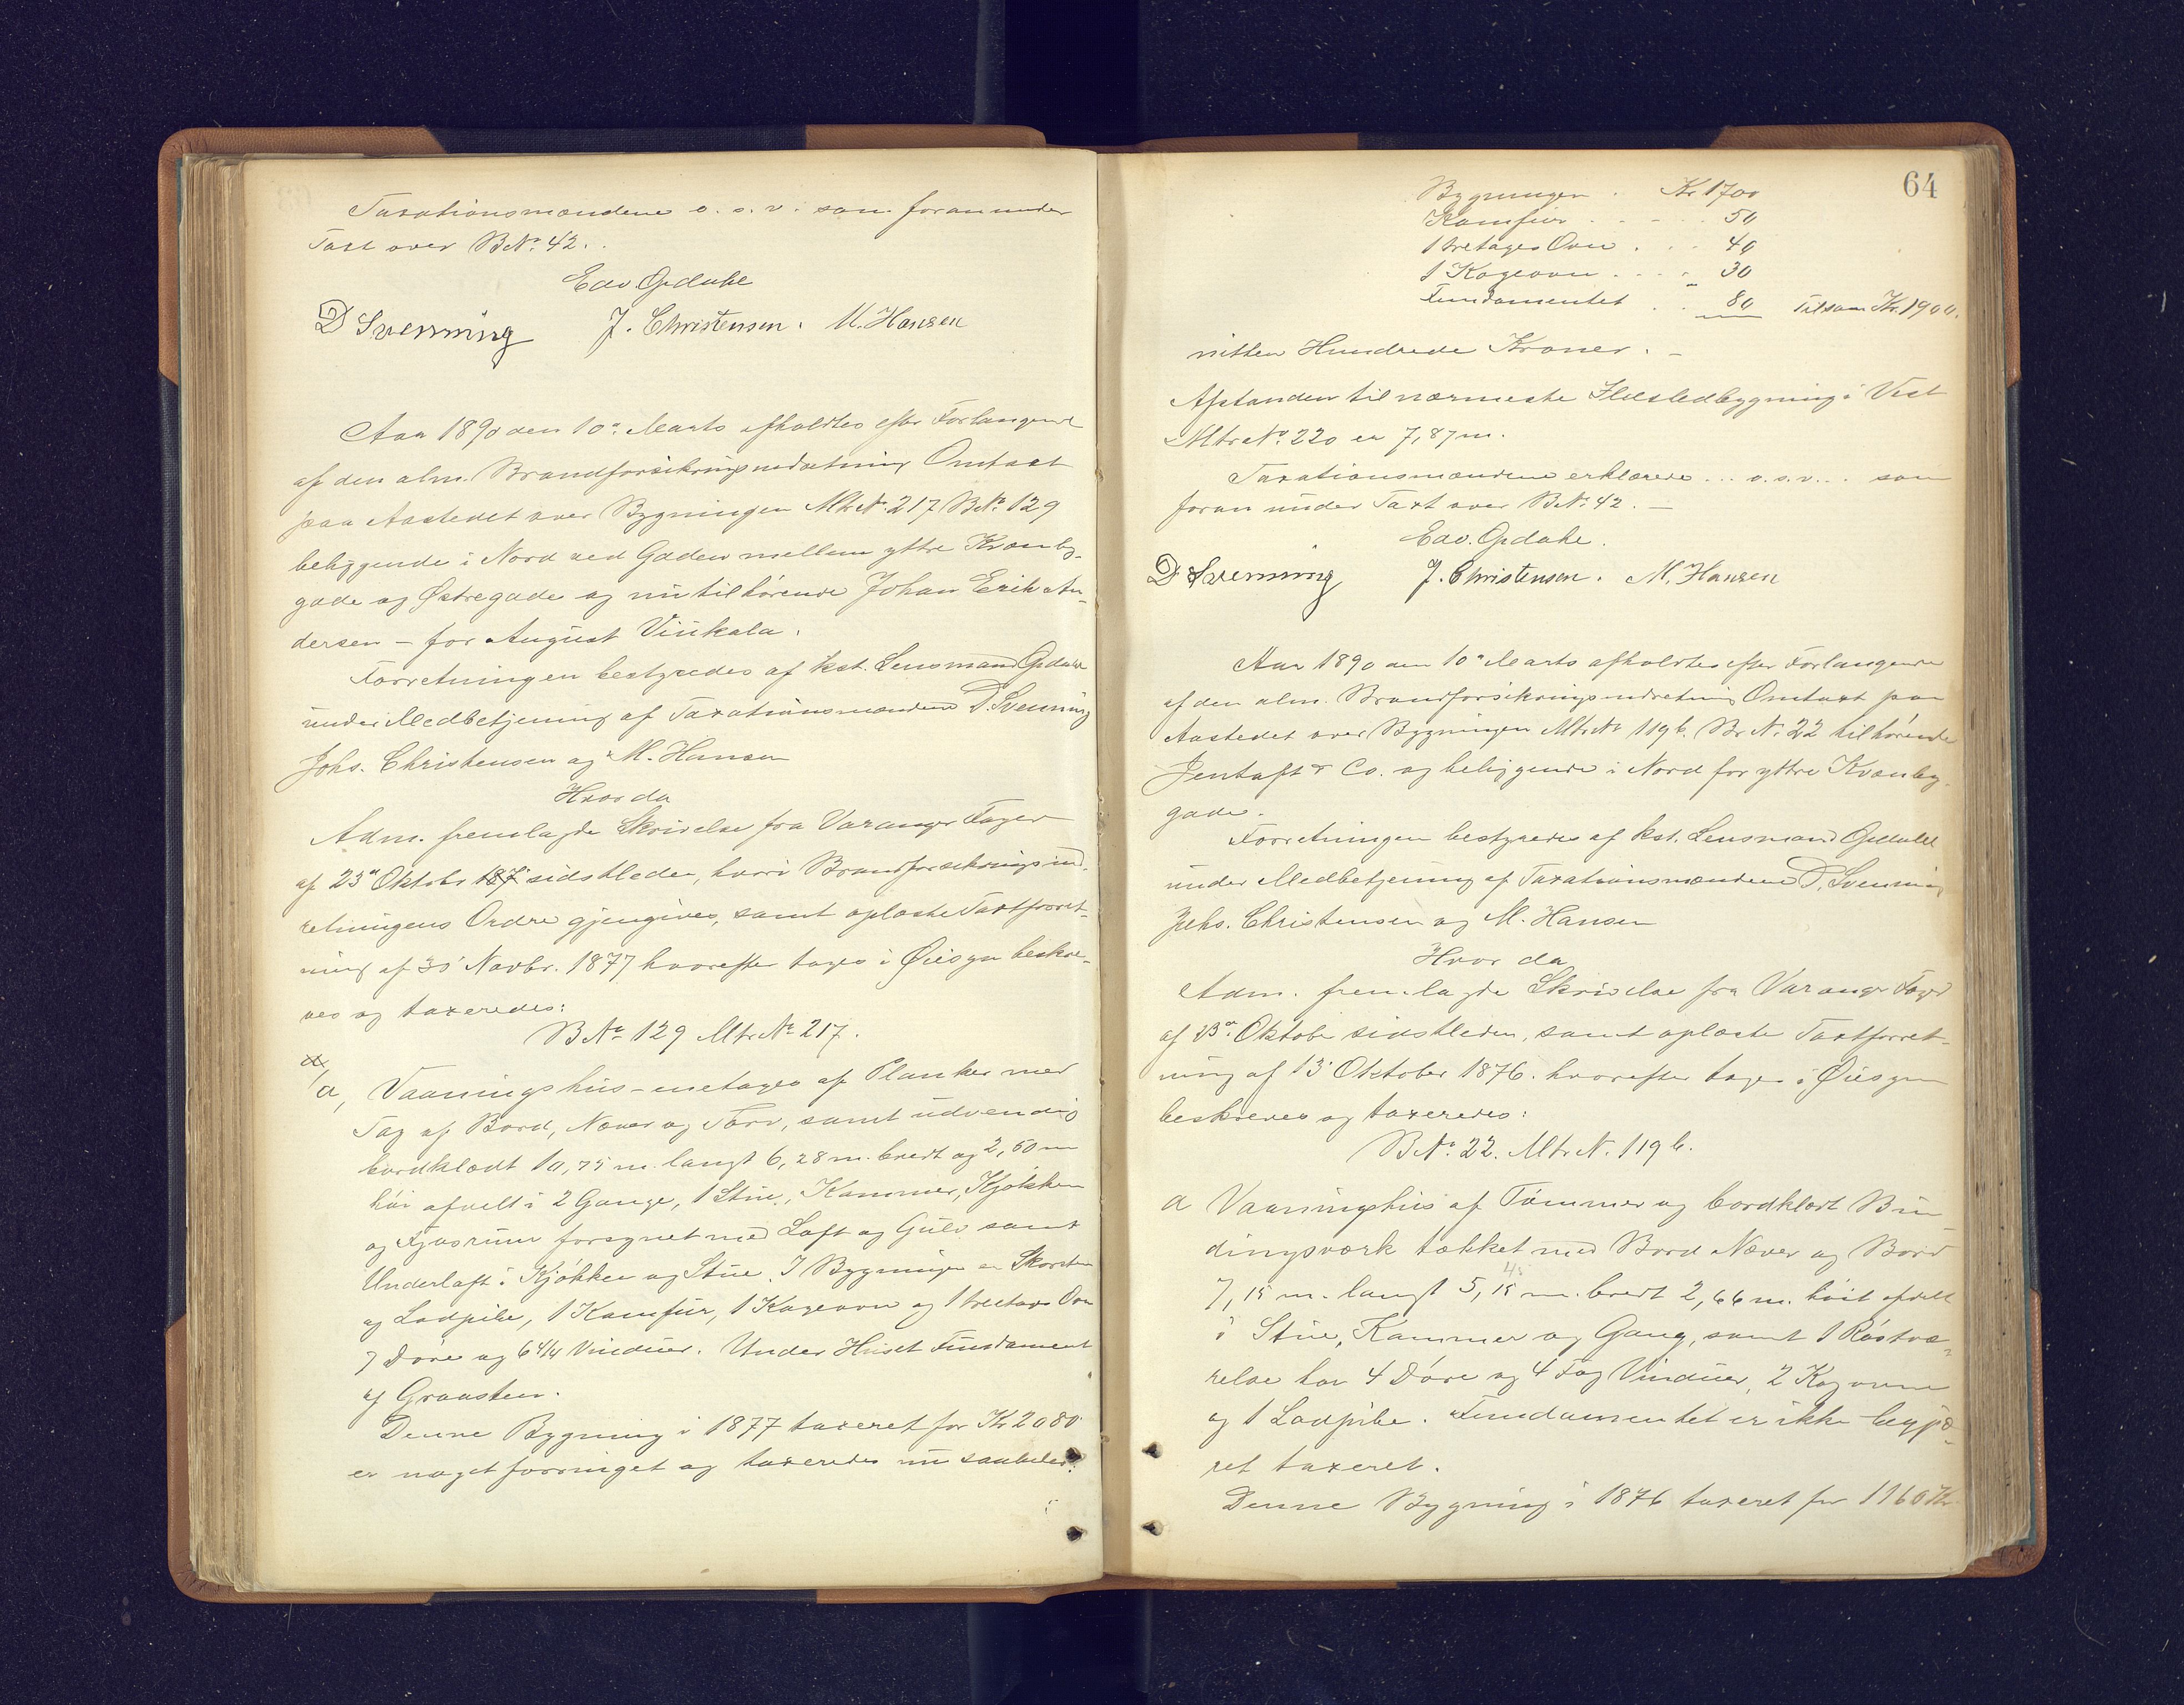 Taxationsmændene o. s. v. som foran under
Taxt over B.Nº 42.
Edv. Opdahl
D Svenning J. Christensen. M. Hansen
Aar 1890 den 10de Marts afholdtes efter Forlangende
af den alm. Brandforsikringsindretning Omtaxt
paa Aastedet over Bygningen Mtr.Nº 217 B.Nº 129
beliggende i Nord ved Gaden mellem yttre Kvænby-
gade og Østregade og nu tilhørende Johan Erik An-
dersen – for August Viikala.
Forretningen bestyredes af kst. Lensmand Opdahl
under Medbetjening af Taxationsmændene D. Svenning
Johs. Christensen og M. Hansen
Hvor da
Adm. fremlagde Skrivelse fra Varanger Fogd
af 23de Oktobr 187 sidstleden, hvori Brandforsikringsind-
retningens Ordre gjengives, samt oplæste Taxtforret-
ning af 30 Novbr. 1877 hvorefter toges i Øiesyn beskre-
ves og taxeredes:
B Nº 129 Mtr Nº 217.
a
a, Vaaningshus – enetages af Planker med
Tag af Bord, Næver og Torv, samt udvendig
bordklædt 10,75 m. langt 6,28 m. bredt og 2,50 m
høi afdelt i 2 Gange, 1 Stue, Kammer, Kjøkken
og Fjøsrum forsynet med Loft og Gulv samt
Underloft i Kjøkken og Stue. I Bygningen er Skorsten
og Lodpibe, 1 Komfur, 1 Kogeovn og 1 tretages Ovn
7 Døre og 6 4/4 Vinduer. Under Huset Fundament
af Graasten.
Denne Bygning i 1877 taxeret for Kr 2080
er noget forringet og taxeredes nu saaledes:
64
Bygningen . Kr. 1700
Komfur . . . . 50
1 tretages Ovn . . . 40
1 Kogeovn . . . . 30
Fundamentet . . 80 Tilsam Kr. 1900.
nitten Hundrede Kroner. –
Afstanden til nærmeste Ildstedbygning i Vest
Mtr.Nº 220 er 7,87 m.
Taxationsmændene erklærede ... o.s.v... som
foran under Taxt over B.Nº 42. –
Edv. Opdahl.
D Svenning J. Christensen. M. Hansen
Aar 1890 den 10de Marts afholdtes efter Forlangende
af den alm. Brandforsikringsindretning Omtaxt paa
Aastedet over Bygningen Mtr.Nº 119 b. Br.Nº 22 tilhørende
Jentoft & Co. og beliggende i Nord for yttre Kvænby-
gade.
Forretningen bestyredes af kst. Lensmand Opdahl
under Medbetjening af Taxationsmændene D. Svenning
Johs. Christensen og M. Hansen
Hvor da
Adm. fremlagde Skrivelse fra Varanger Fogd
af 23de Oktobr sidstleden, samt oplæste Taxtforret-
ning af 13 Oktober 1876. hvorefter toges i Øiesyn
beskreves og taxeredes:
B Nº 22. Mtr.N. 119 b.
a Vaaningshus af Tømmer og bordklædt Bin-
dingsværk tækket med Bord Næver og Bord
45
7,15 m. langt 5,15 m. bredt 2,66 m. høit afdelt
i Stue, Kammer og Gang, samt 1 Røstvæ-
relse har 4 Døre og 4 Fag Vinduer, 2 Kogovne
og 1 Lodpibe. Fundamentet er ikke
ret taxeret.
Denne Bygning i 1876 taxeret for 1160 Kr